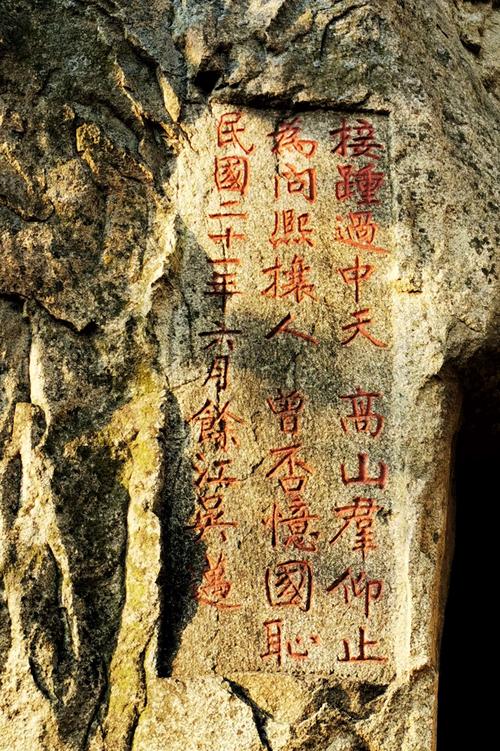 接踵過中天 高山羣仰止
為問熙攘人 曾否憶國恥
民國二十一年六月餘江吳邁